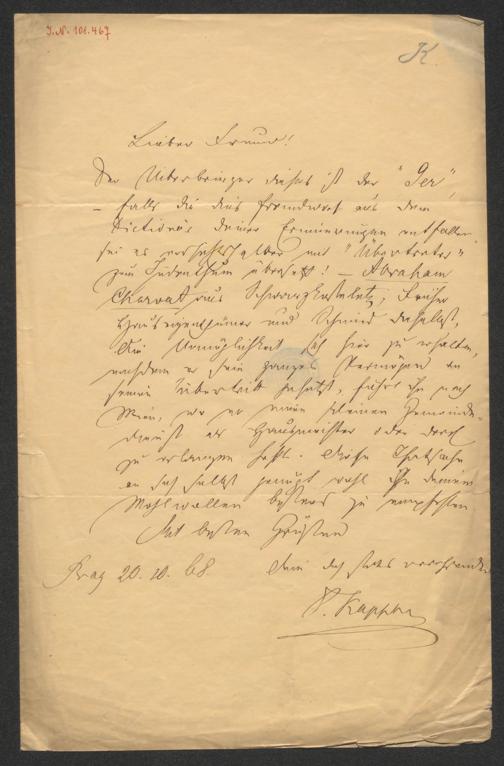 I.N. 101.467
K.
Lieber Freund!
Der Ueberbringer dieses ist der "Ger",
– falls dir das Fremdwort aus dem
Dictionär deiner Erinnerungen entfallen
sei es mit "Übertreter"
zum Judenthum übersetzt! – Abraham
Charvat aus Schwarzkosteletz, früher
Hauseigenthümer und Schmied daselbst,
die Unmöglichkeit sich hier zu erhalten,
nachdem er sein ganzes Vermögen an
seinen Übertritt gesetzt, führt ihn nach
Wien, wo er einen kleinen Gemeinde-
dienst als Hausmeister oder
zu erlangen hofft. Diese Thatsache
an sich selbst genügt wohl ihn deinem
Wohlwollen bestens zu empfehlen
Mit besten Grüßen
Prag 20. 10. 68. dein dich stets
S. Kapper